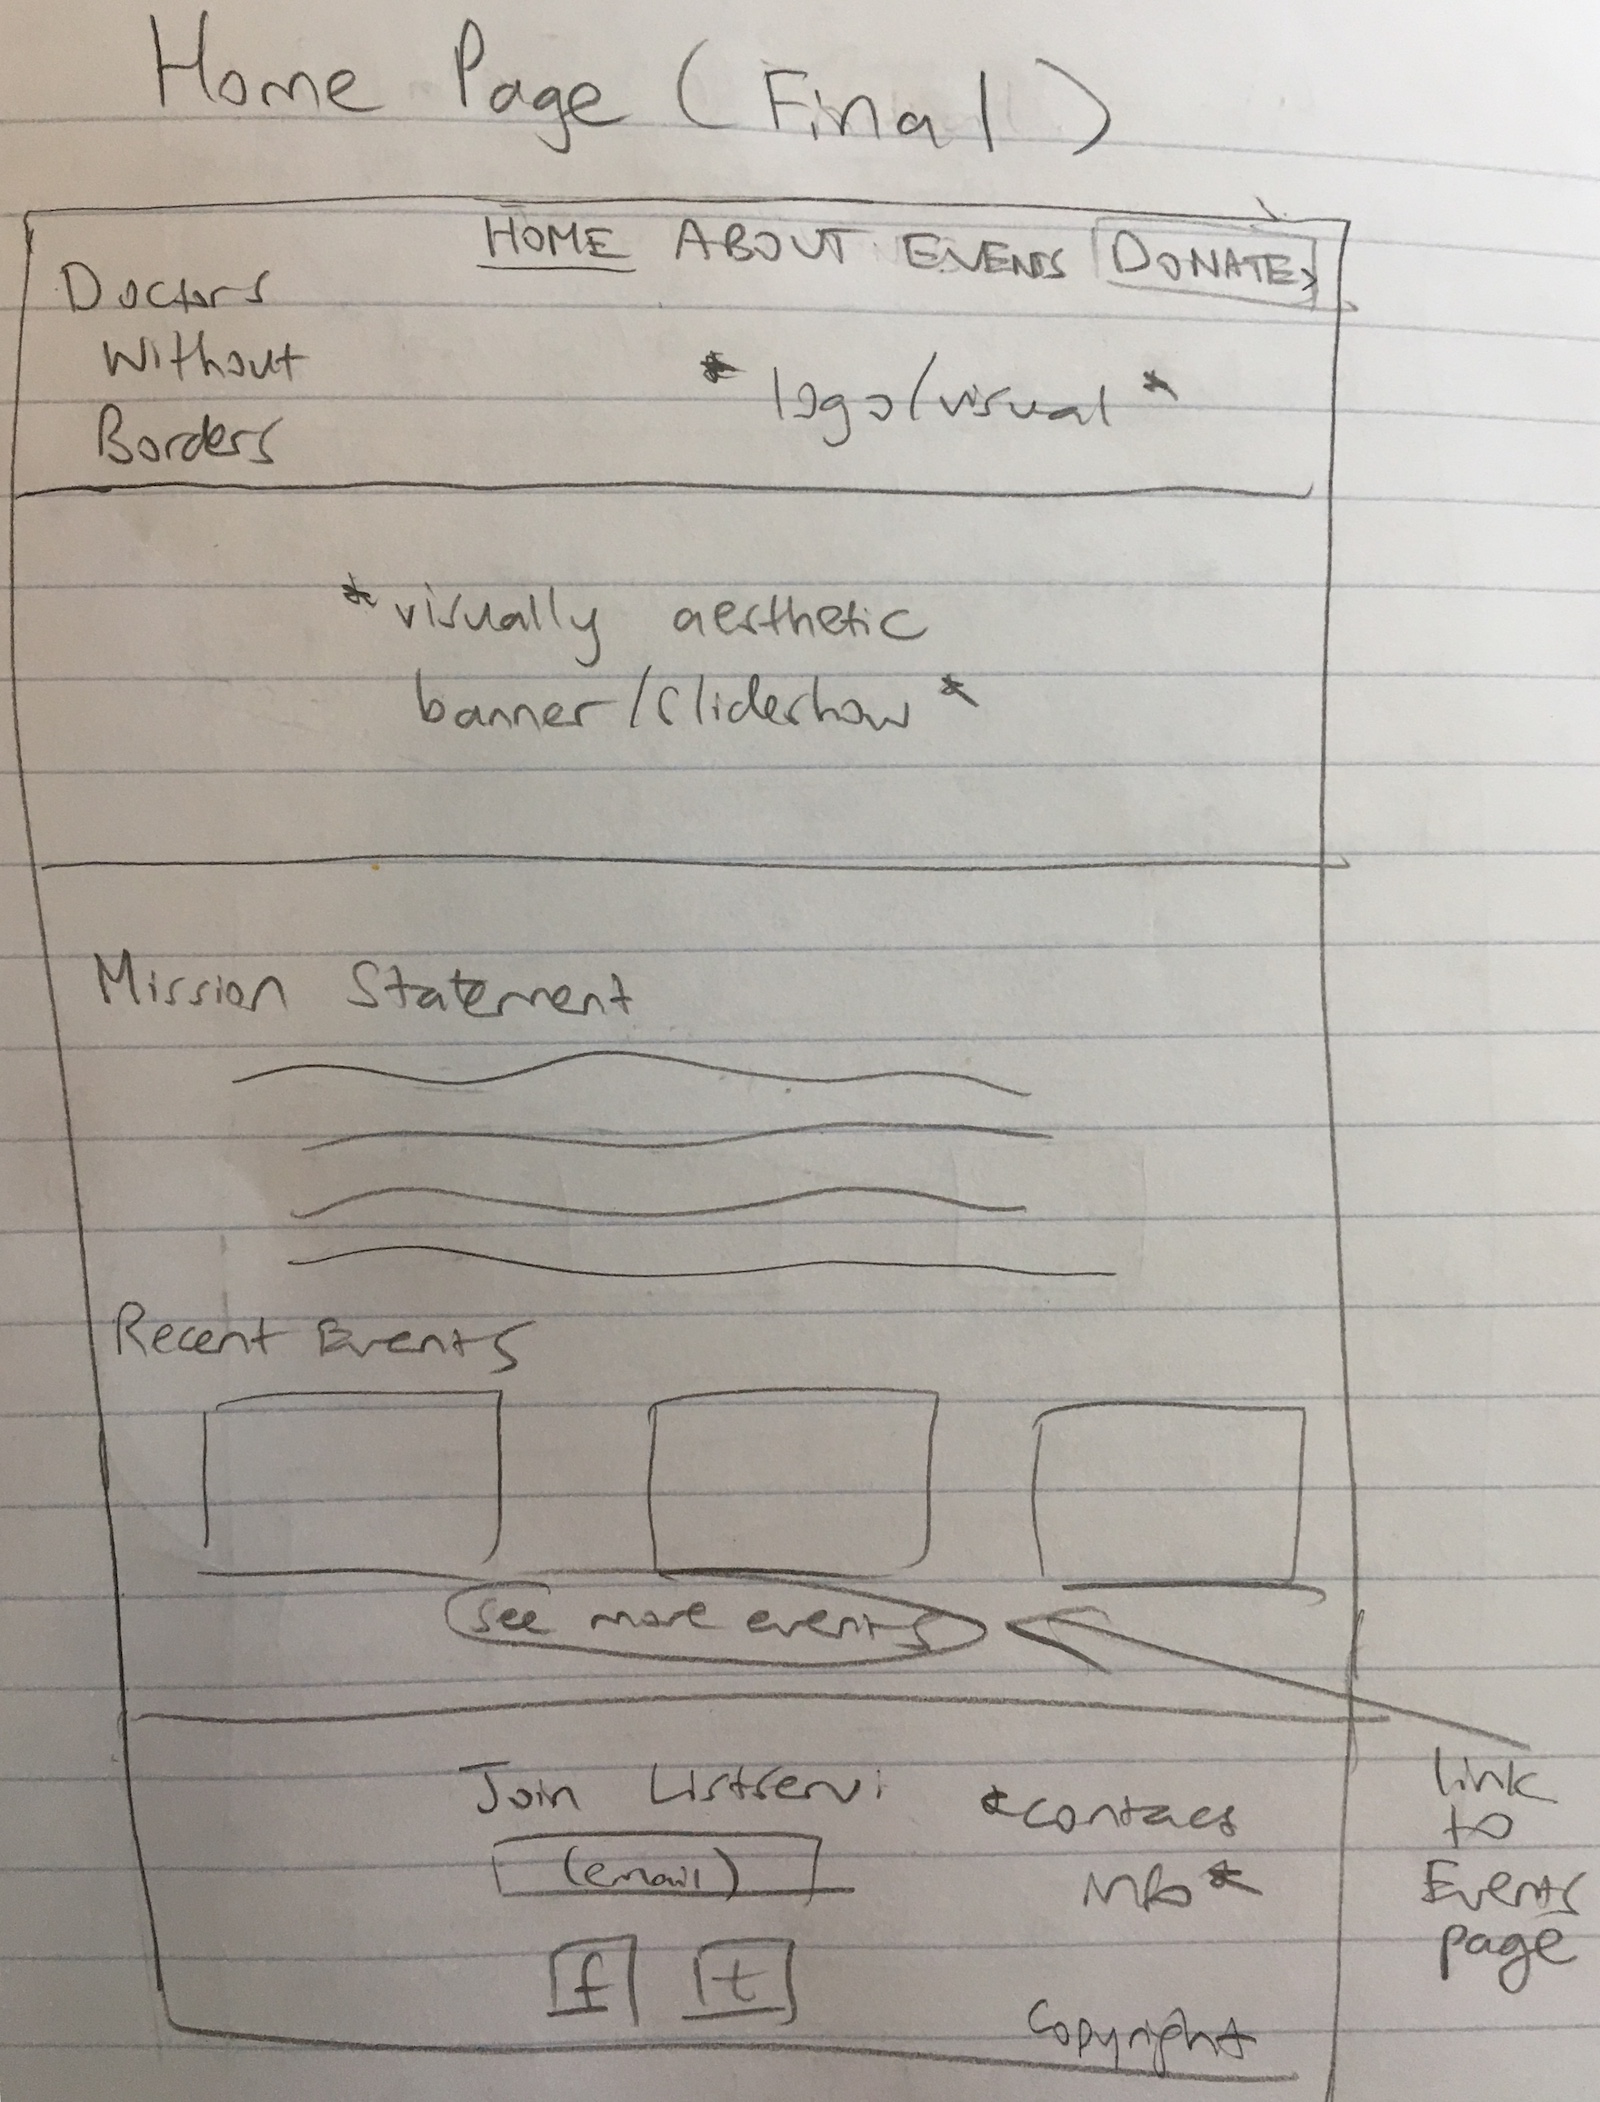 Home Page (Final)
HOME ABOUT EVENTS DONATE>
Doctors
Without
Borders
* logo/visual *
*visually aesthetic
banner/slideshow*
Mission Statement
Recent Events
see more events
Join Listserv:
(email)
*contact
info*
f t
Copyright
link
to
Events
page